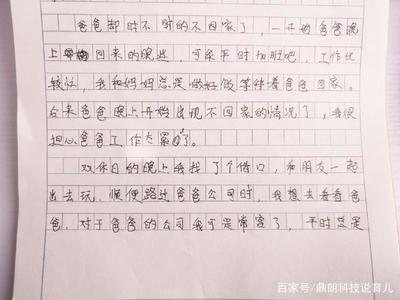 爸爸却时不时的不回家了，一开始爸爸晚
上回来的晚些，可能平时加班吧，工作比
较忙，我和妈妈总是做好饭等待着爸爸回家。
后来爸爸晚上开始出现不回家的情况了，我很
担心爸爸工作太累了。
双休日的晚上我找了个借口，和朋友一起
出去玩，顺便路过爸爸公司时，我想去看看爸
爸，对于爸爸的公司我可是常客了，平时总是
百家号/鼎朗科技说育儿